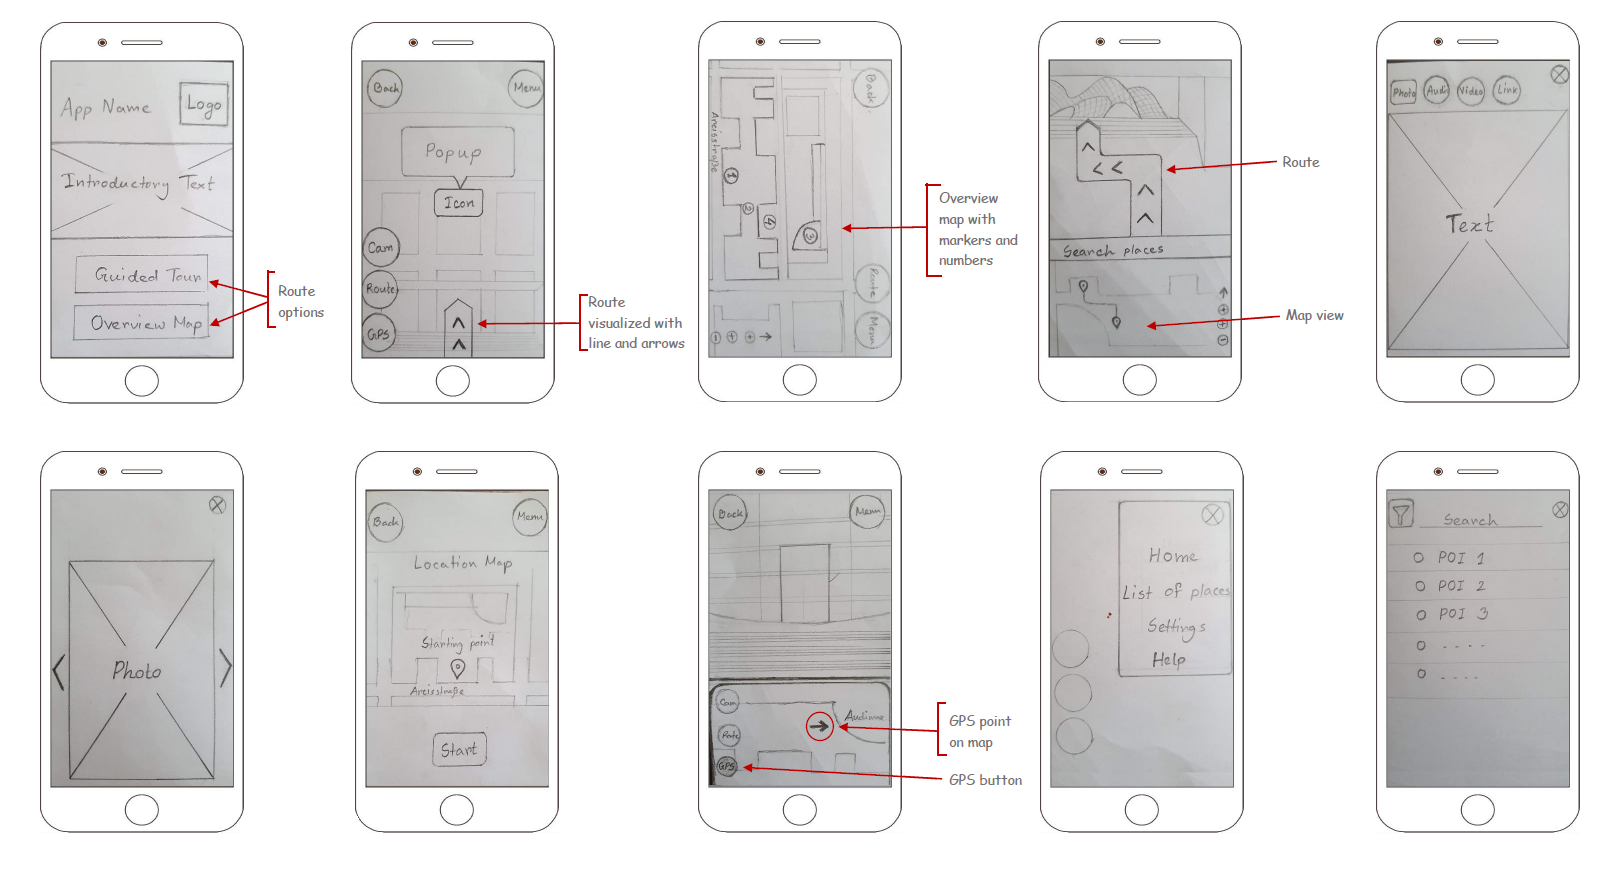 App Name
Logo
Introductory Text
Guided Tour
Overview Map
Route
options
Back
Menu
Popup
Icon
Cam
Route
GPS
Route
visualized with
line and arrows
Back
Arcisstraße
1
2
4
3
Route
Menu
Overview
map with
markers and
numbers
Search places
Route
Map view
Photo
Audio
Video
Link
Text
Photo
Back
Menu
Location Map
Starting point
Arcisstraße
Start
Back
Menu
Cam
Route
GPS
Audimax
GPS point
on map
GPS button
Home
List of places
Settings
Help
Search
POI 1
POI 2
POI 3
- - - -
- - - -